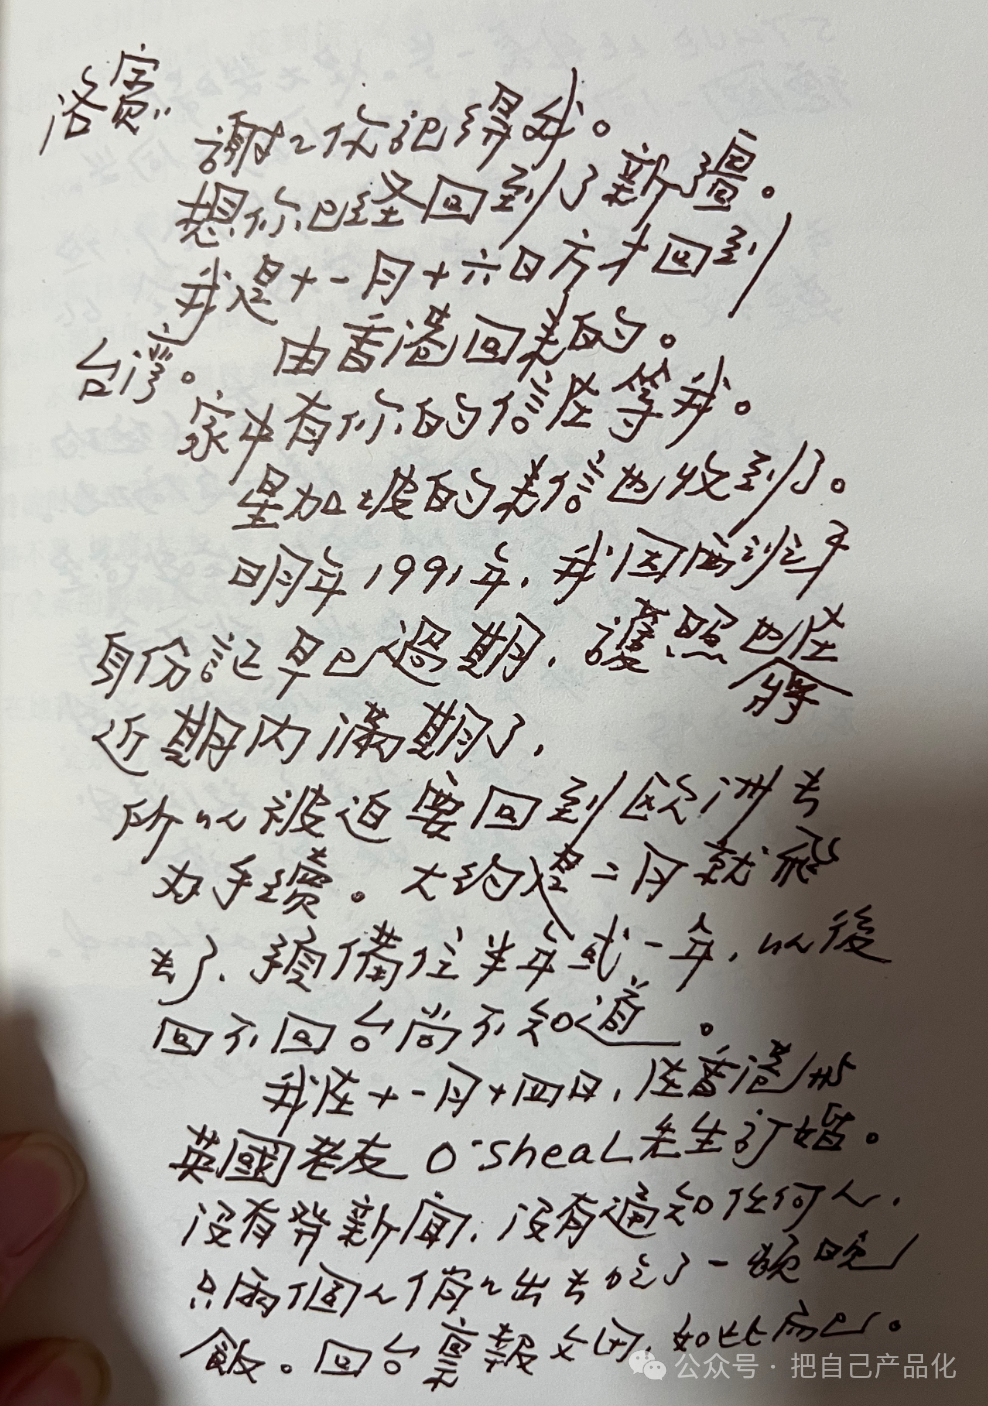 洛賓：
謝謝你記得我。
想你已經回到了新疆。
我是十一月十六日方才回到
台灣。由香港回來的。
家中有你的信在等我。
星加坡的來信也收到了。
明年1991年，我因西班牙
身份記早已過期，護照也在將
近期內滿期了，
所以被迫要回到歐洲去
办手續。大約是二月就飛
去了，預備住半年或一年，以後
回不回台尚不知道。
我在十一月十四日，在香港与
英國老友 O'sheaL先生訂婚。
沒有登新聞，沒有通知任何人，
只兩個人悄悄出去吃了一頓晚
飯。回台稟報父母，如此而已。
公众号·把自己产品化